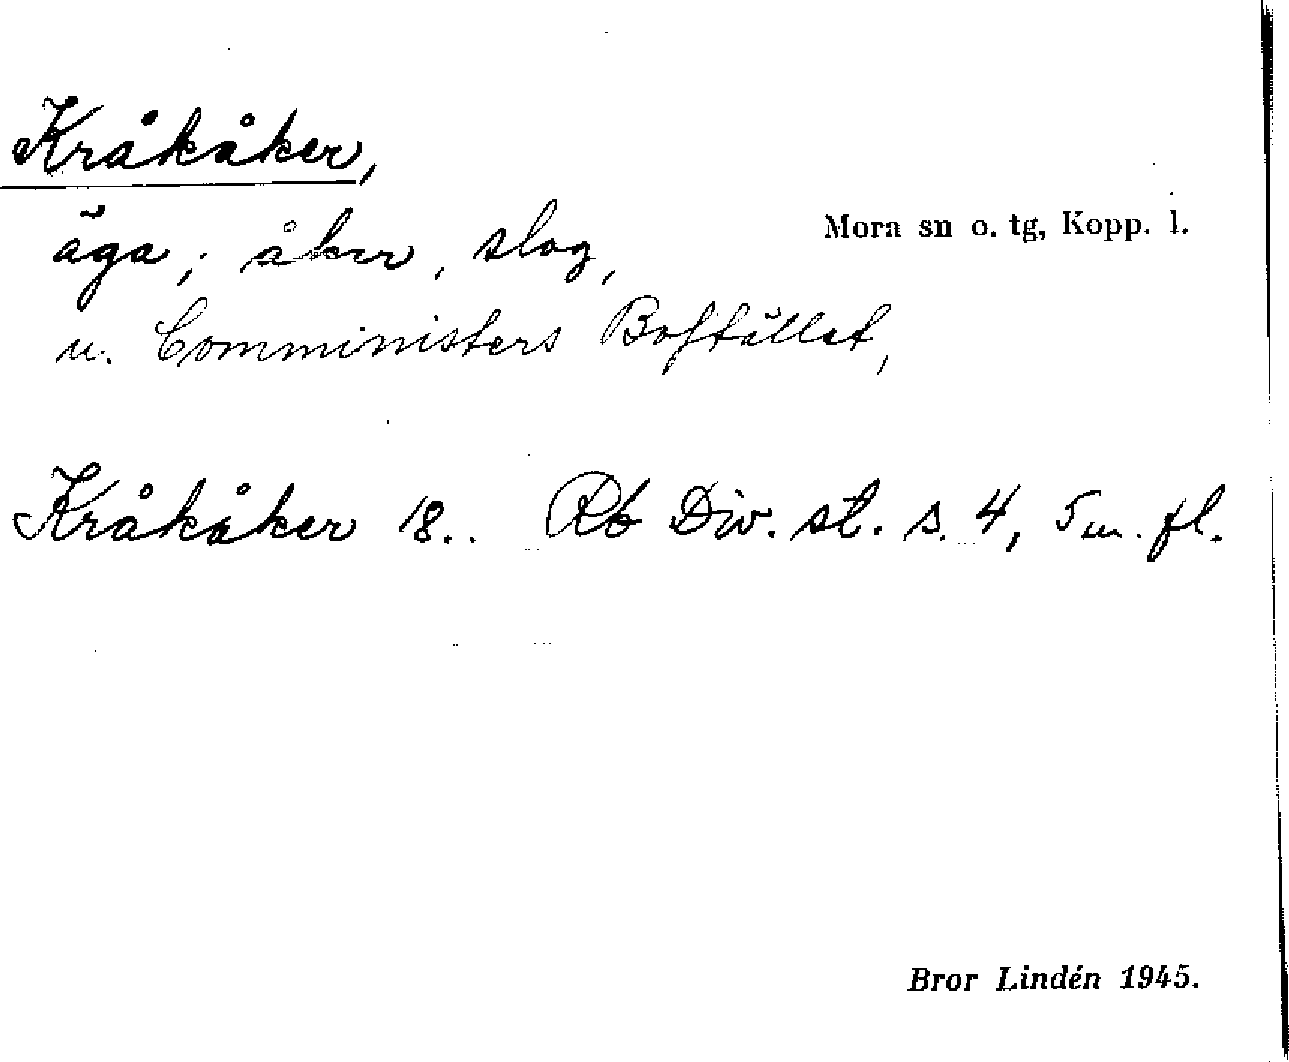 Kråkåker,
Mora sn o. tg, Kopp. l.
äga; åker, slog,
u. Comministers Bostället,
Kråkåker 18.. Rb Div. st. s. 4, 5 m. fl.
Bror Lindén 1945.